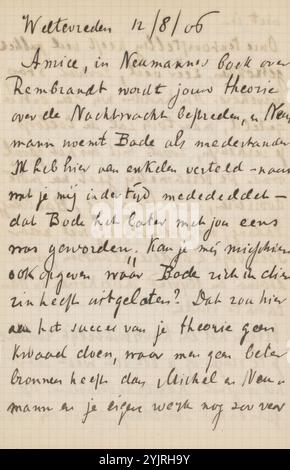 Weltevreden 12/8/06
Amice, in Neumanns boek over
Rembrandt wordt jouw theorie
over de Nachtwacht bestreden, en Neu-
mann noemt Bode als medestander
Ik heb hier aan enkelen verteld - naar
wat je mij indertijd mededeeldet -
dat Bode het later met jou eens
was geworden. Kan je mij misschien
ook opgeven wáár Bode zich in dien
zin heeft uitgelaten? Dat zou hier
aan het succes van je theorie geen
kwaad doen, waar men geen beter
bronnen heeft dan Michel en Neu-
mann en je eigen werk nog zoo ver
alamy
Image ID: 2YJRH9Y
www.alamy.com